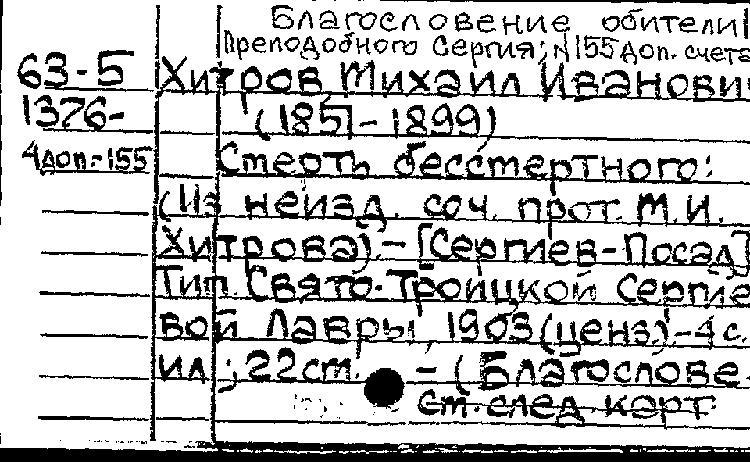 Благословение обители
Преподобного Сергия; N 155 доп. счета
63-5 Хитров, Михаил Иванович
1376- (1851-1899)
4доп.-155 Смерть бессмертного:
(Из неизд. соч. прот. М.И.
Хитрова).-[Сергиев-Посад]
Тип. Свято-Троицкой Сергие-
вой Лавры, 1903(ценз.).-4 с.
ил.; 22см. - (Благослове-
см. след. карт